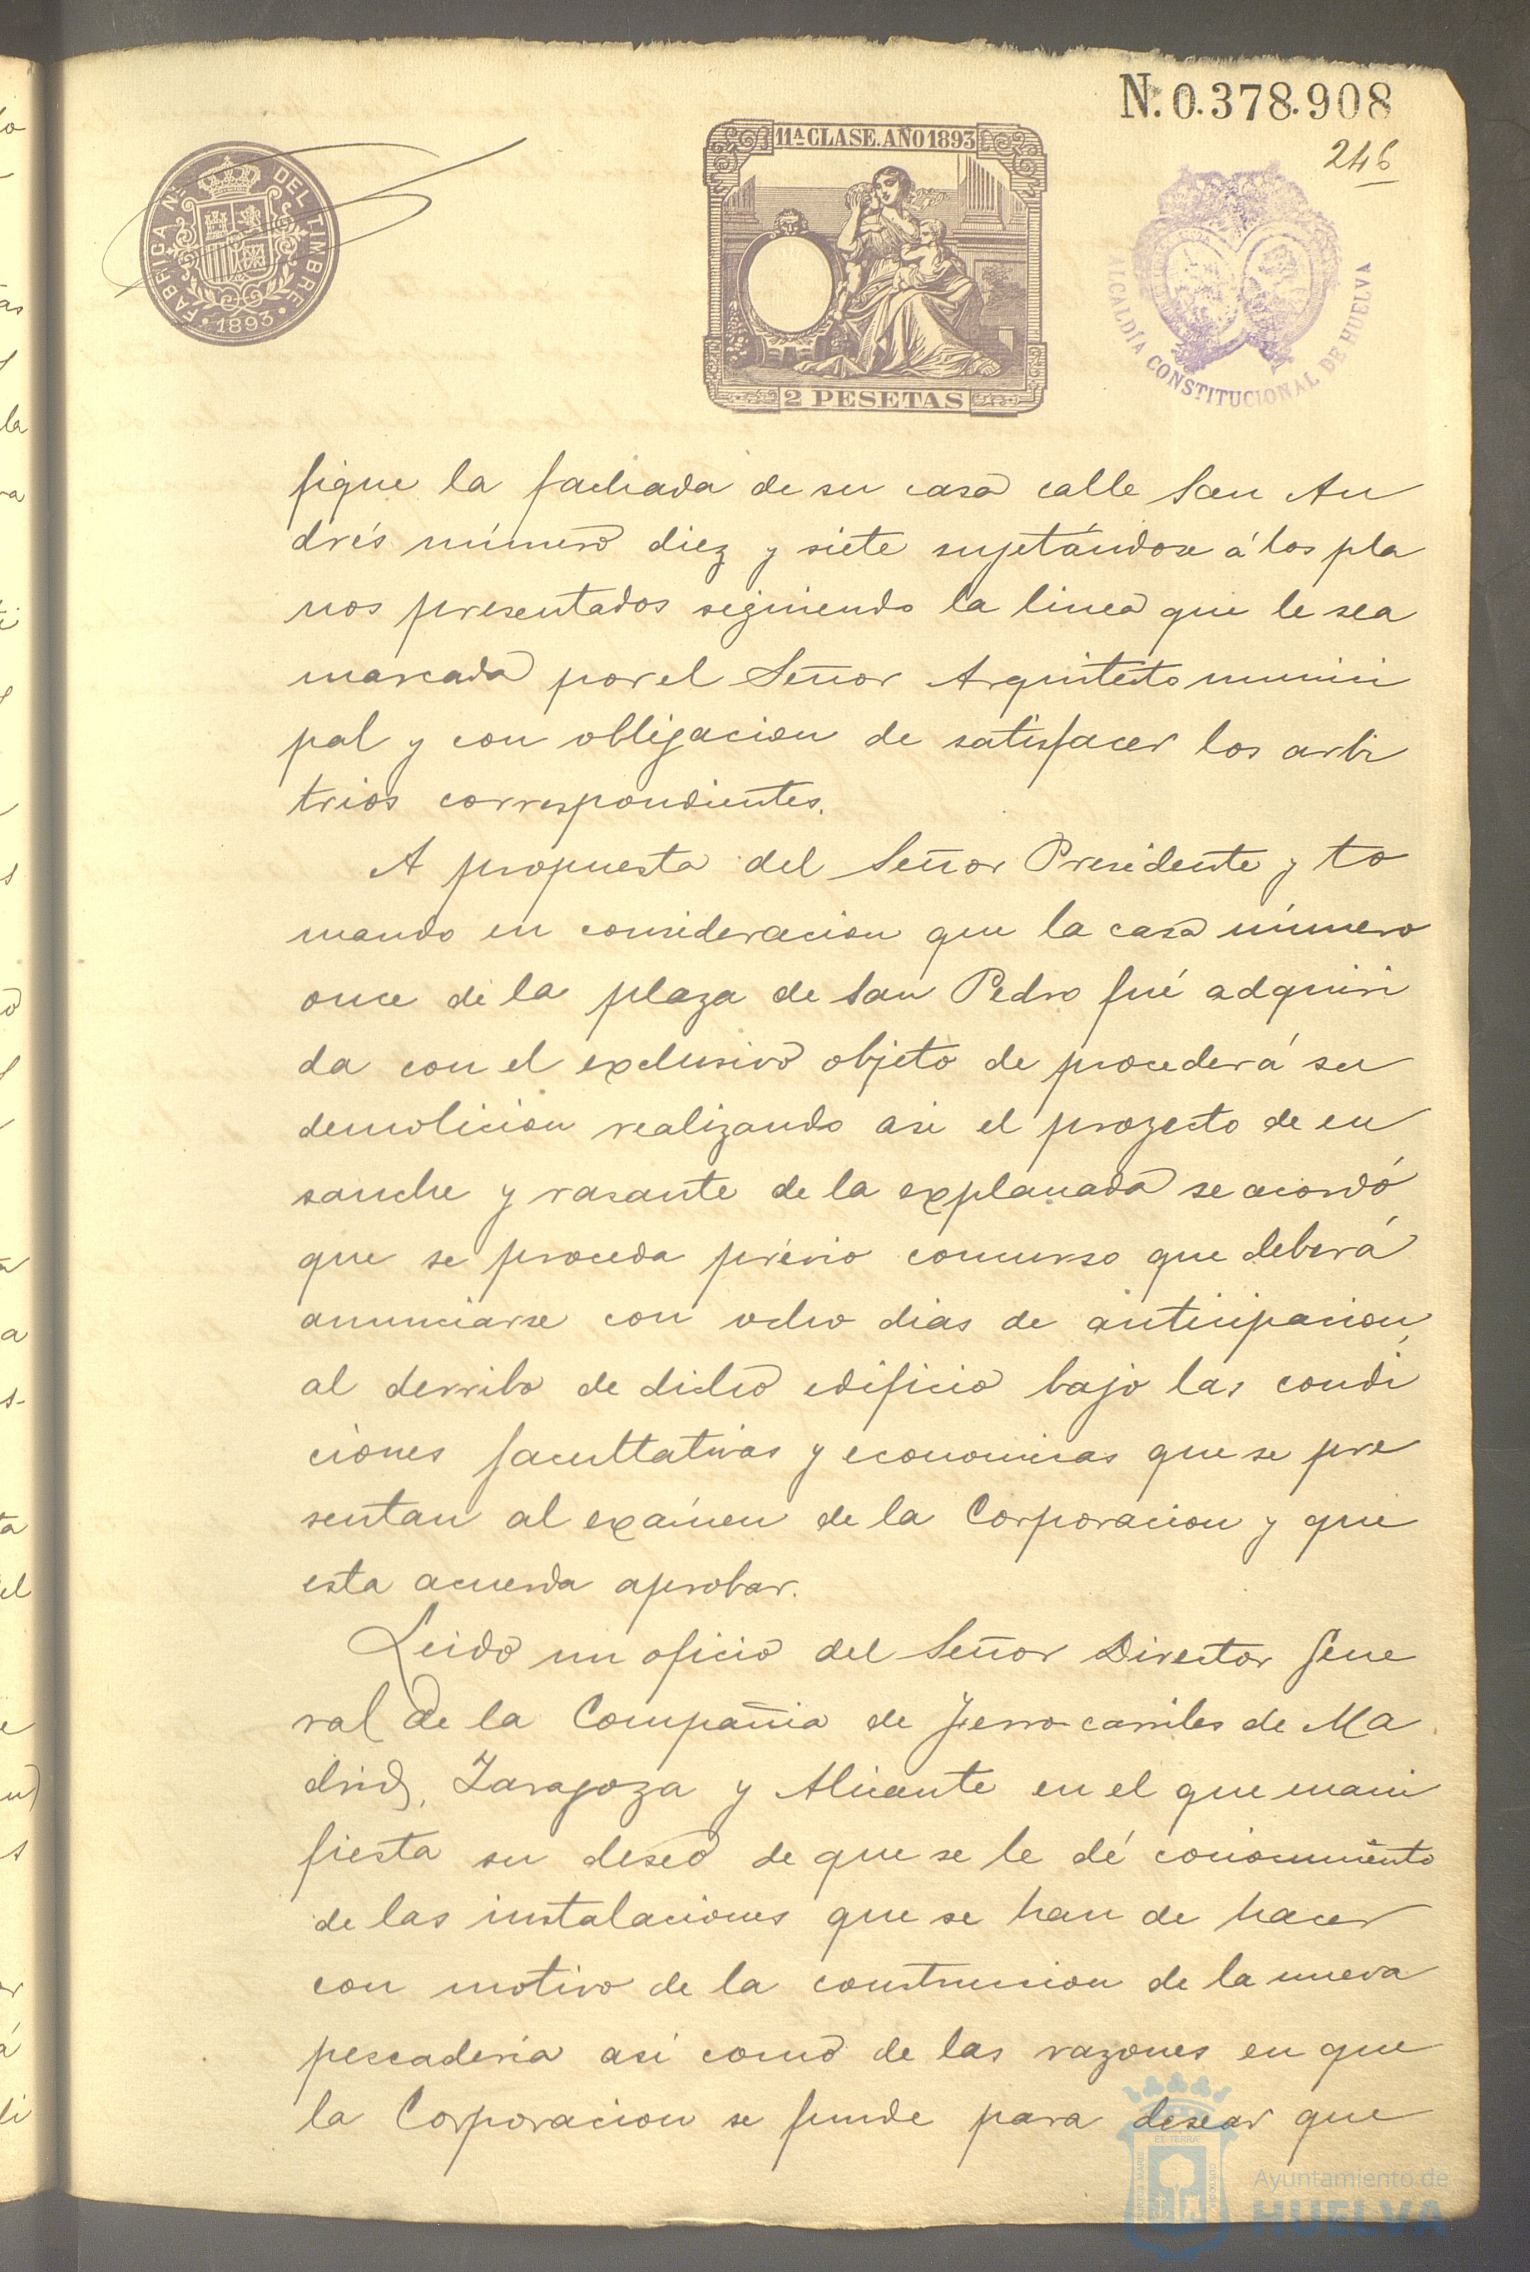 N.º 0.378.908
246
FÁBRICA N.L DEL TIMBRE
1893
11ª CLASE. AÑO 1893
2 PESETAS
ALCALDÍA CONSTITUCIONAL DE HUELVA
fique la fachada de su casa calle San An
drés número diez y siete sujetándose á los pla
nos presentados siguiendo la linea que le sea
marcada por el Señor Arquitecto munici
pal y con obligacion de satisfacer los arbi
trios correspondientes.
A propuesta del Señor Presidente y to
mando en consideracion que la casa número
once de la plaza de San Pedro fué adquiri
da con el exclusivo objeto de proceder á su
demolicion realizando asi el proyecto de en
sanche y rasante de la explanada se acordó
que se proceda prévio concurso que deberá
anunciarse con ocho dias de anticipacion,
al derribo de dicho edificio bajo las condi
ciones facultativas y economicas que se pre
sentan al exámen de la Corporacion y que
esta acuerda aprobar.
Leido un oficio del Señor Director Gene
ral de la Compañia de Ferro-carriles de Ma
drid, Zaragoza y Alicante en el que mani
fiesta su deseo de que se le dé conocimiento
de las instalaciones que se han de hacer
con motivo de la construccion de la nueva
pescadería asi como de las razones en que
la Corporacion se funde para desear que
Ayuntamiento de
HUELVA